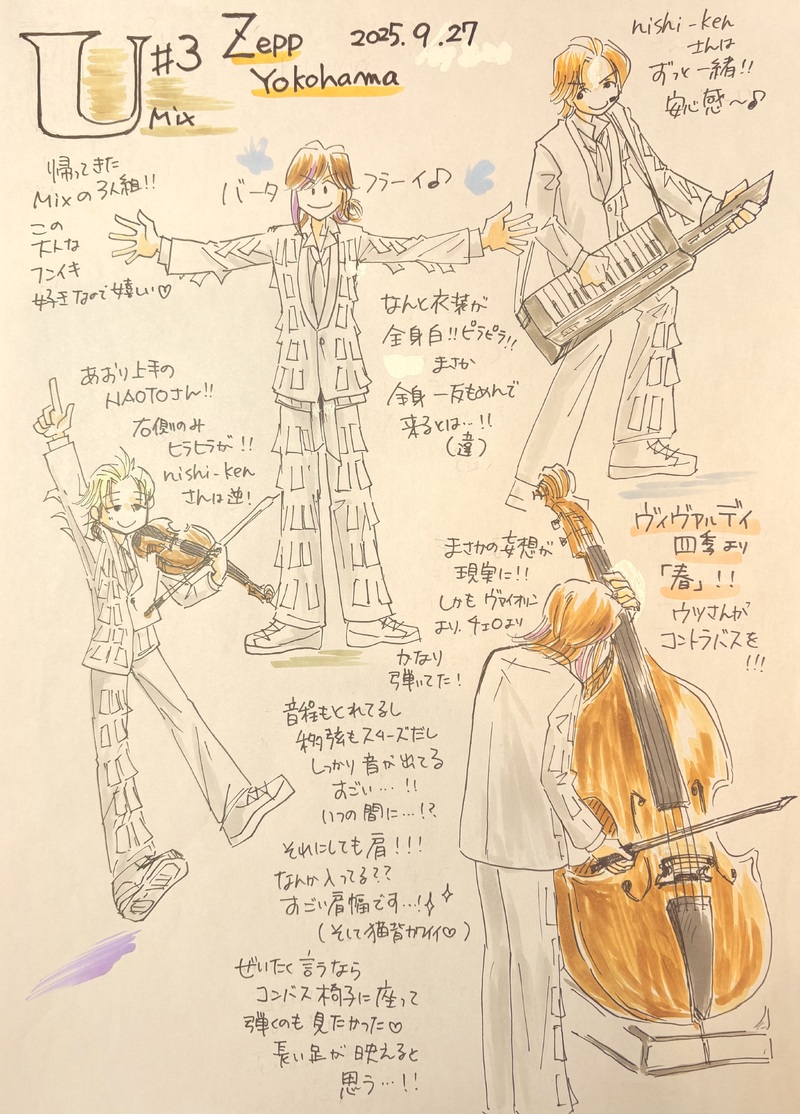 U #3 Zepp
Yokohama
Mix
2025.9.27
nishi-ken
さんは
ずっと一緒!!
安心感〜♪
帰ってきた
Mixの3人組!!
この
大人な
フンイキ
好きなので嬉しい♡
バータフラーイ♪
なんと衣装が
全身白!!ピラピラ!!
まさか
全身一反もめんで
来るとは…!!
(違)
あおり上手の
NAOTOさん!!
右側のみ
ヒラヒラが!!
nishi-ken
さんは逆!
ヴィヴァルディ
四季より
「春」!!
ウツさんが
コントラバスを
!!!
まさかの妄想が
現実に!!
しかもヴァイオリン
より、チェロより
かなり
弾いてた!
音程もとれてるし
移弦もスムーズだし
しっかり音が出てる
すごい…!!
いつの間に…!?
それにしても肩!!!
なんか入ってる??
すごい肩幅です…!
(そして猫背カワイイ♡)
ぜいたく言うなら
コンバス椅子に座って
弾くのも見たかった♡
長い足が映えると
思う…!!